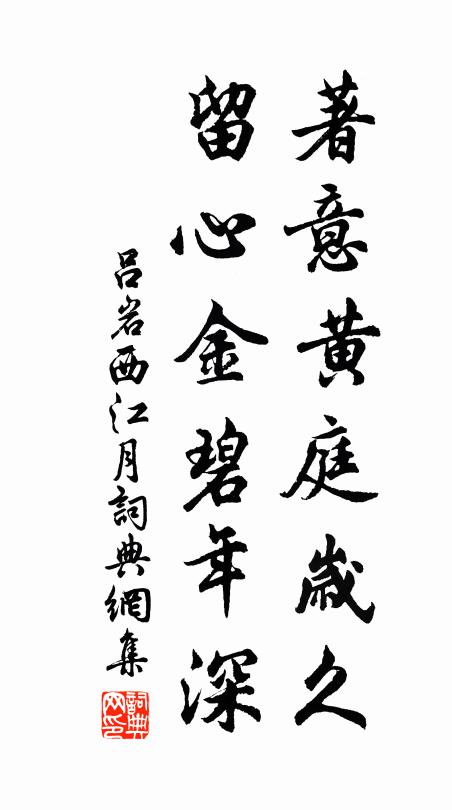 著意黃庭歲久
留心金碧年深
吕岩西江月詞典網集
詞典網印